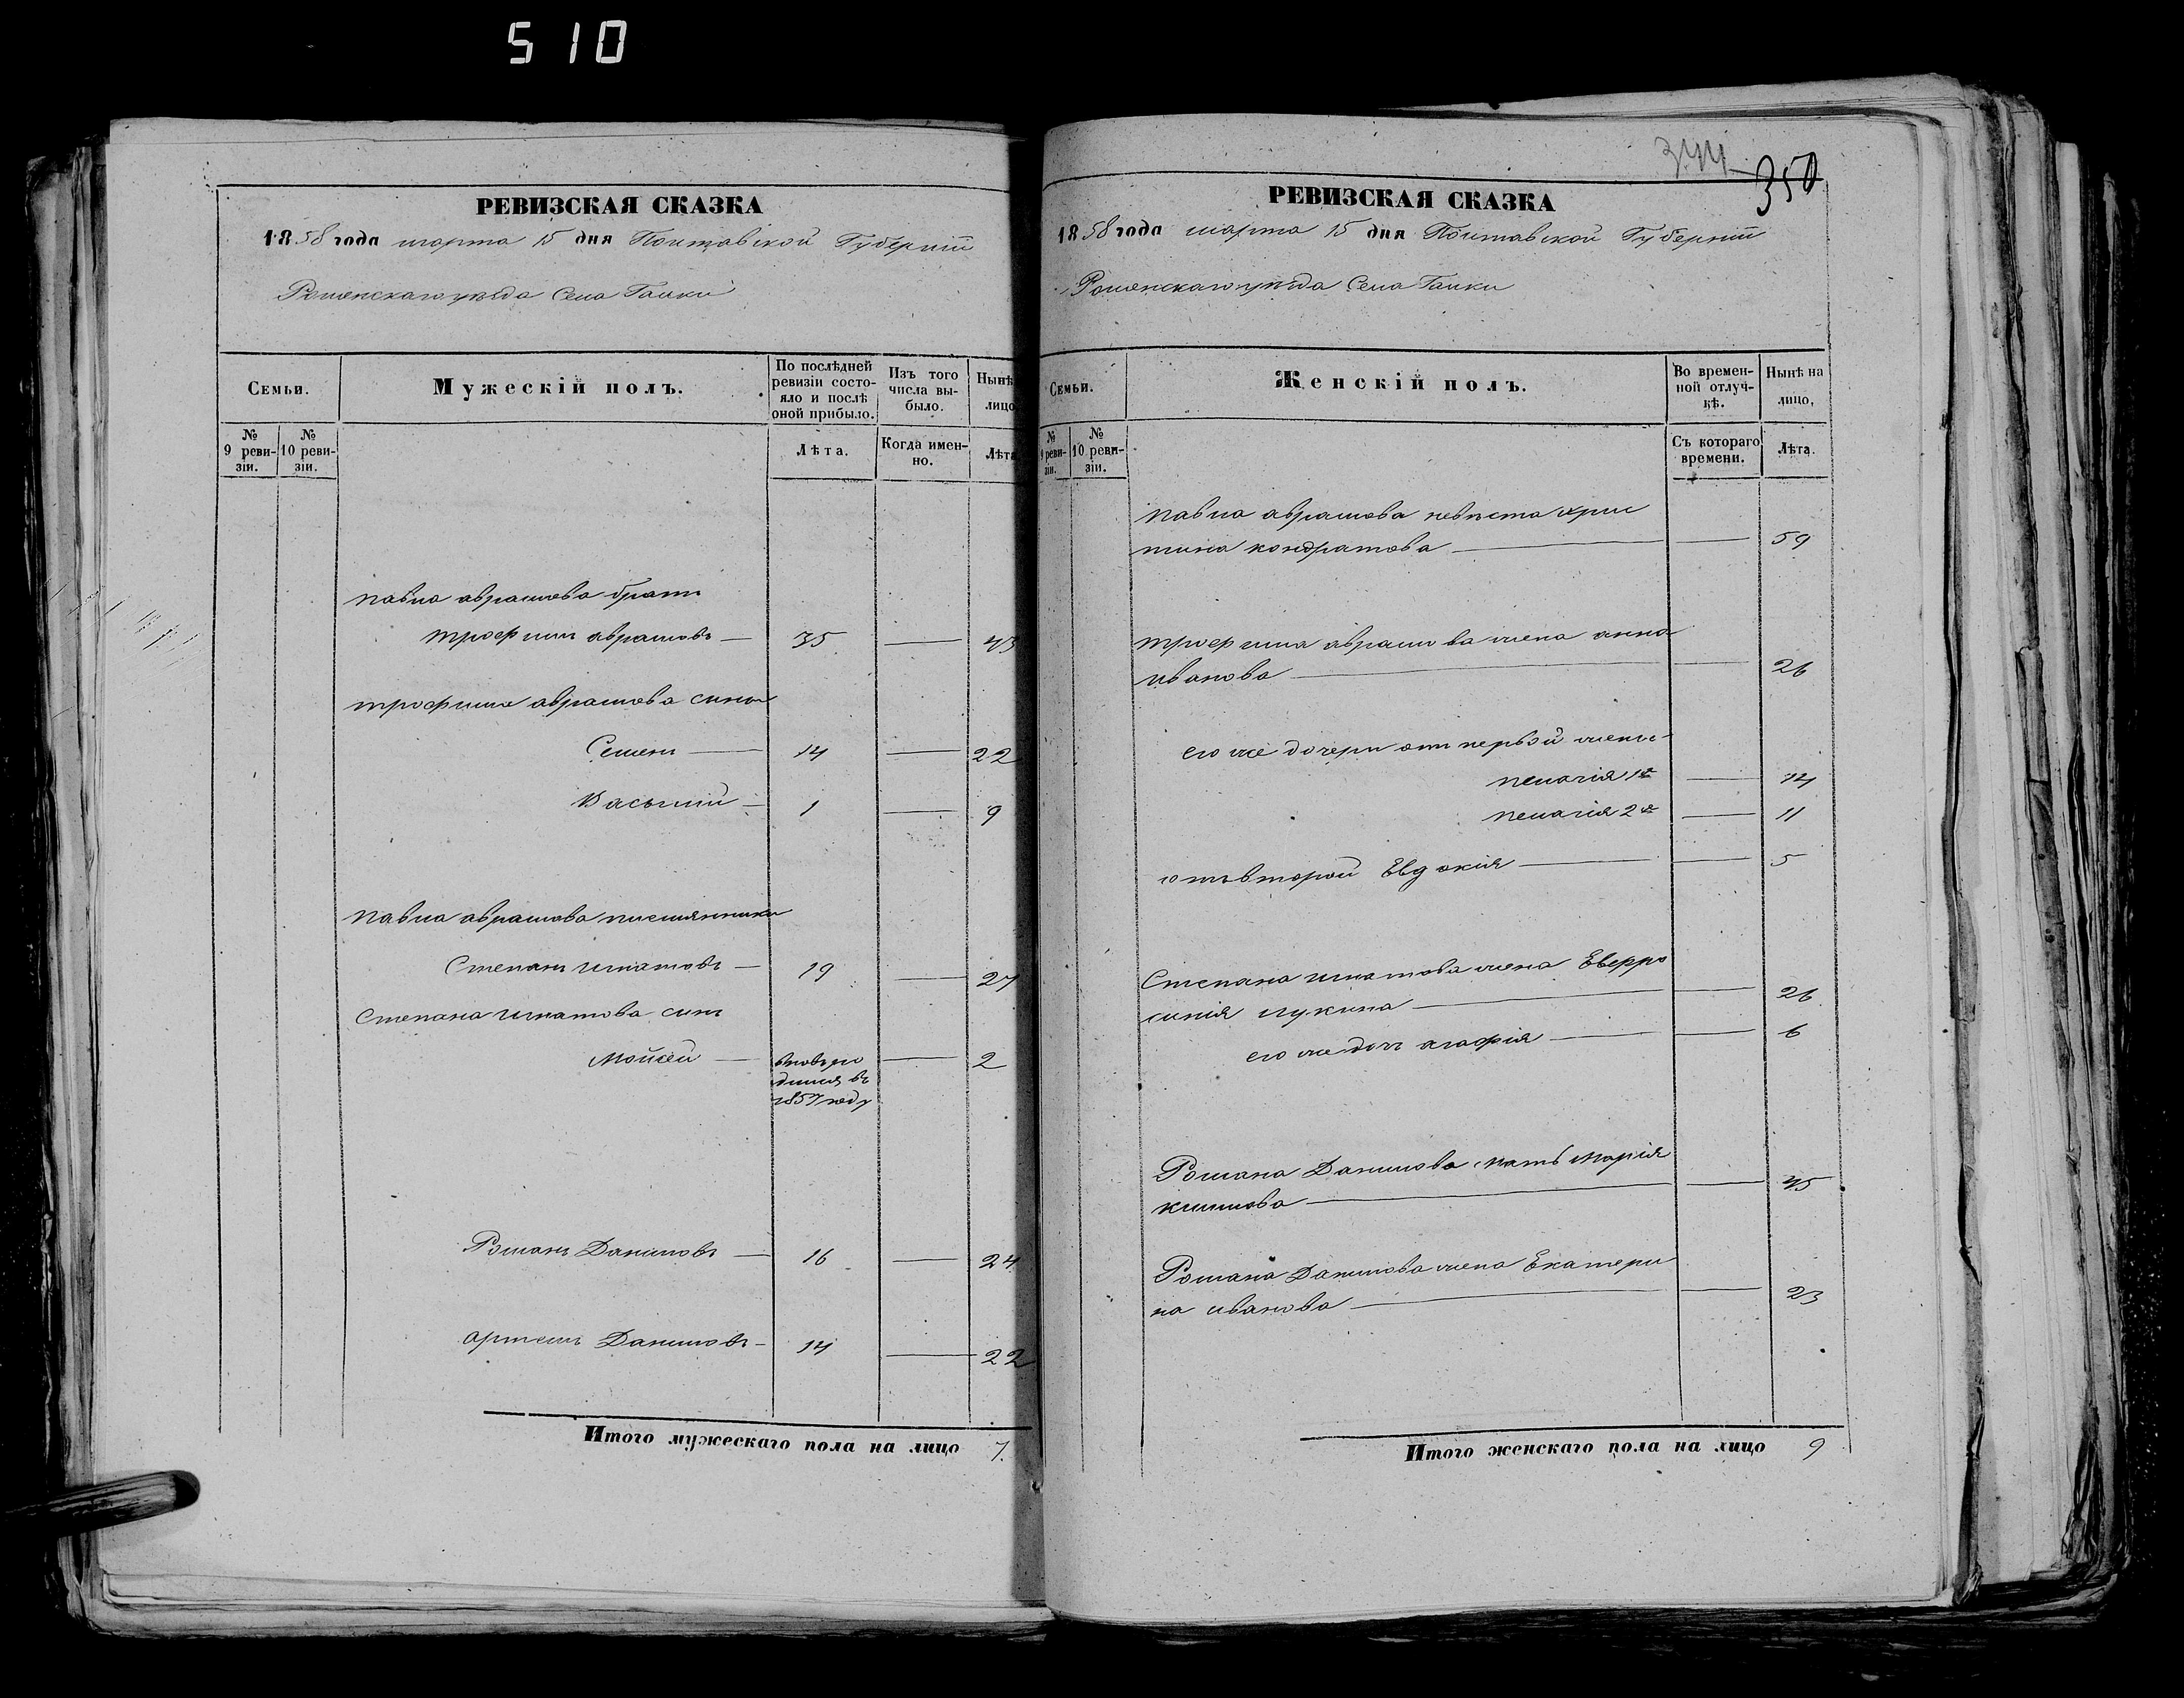 510
РЕВИЗСКАЯ СКАЗКА
1858 года марта 15 дня Полтавской Губернии
Роменскаго уезда Села Галки
Семьи.
Мужескій полъ.
По послѣдней
ревизіи состо-
яло и послѣ
оной прибыло.
Изъ того
числа вы-
было.
Нынѣ
лицо
№
9 реви-
зіи.
№
10 реви-
зіи.
Лѣта.
Когда имен-
но.
Лѣта
павла аврамова братъ
трофим аврамовъ — 35 — 43
трофима аврамова сины
Семенъ — 14 — 22
Василий — 1 — 9
павла аврамова племянники
Степанъ игнатовъ — 19 — 27
Степана игнатова синъ
Мойсей — вновь ро — 2
дился въ
1857 году
Романъ Даниловъ — 16 — 24
артемъ Даниловъ — 14 — 22
Итого мужескаго пола на лицо 7.
344
350
РЕВИЗСКАЯ СКАЗКА
1858 года марта 15 дня Полтавской Губернии
Роменскаго уезда Села Галки
Семьи.
Женскій полъ.
Во времен-
ной отлуч-
кѣ.
Нынѣ на
лицо,
№
9 реви-
зіи.
№
10 реви-
зіи.
Съ котораго
времени.
Лѣта.
павла аврамова невѣста хрис
тина кондратова — — 59
трофима аврамова жена анна
иванова — — 26
его же дочери отъ первой жены
пелагія 1я — 14
пелагія 2я — 11
отъ второй Евдокія — — 5
Степана игнатова жена Евфро
синія лукина — — 26
его же дочь агафія — — 6
Романа Данилова мать Марія
климова — — 45
Романа Данилова жена Екатери
на иванова — — 23
Итого женскаго пола на лицо 9